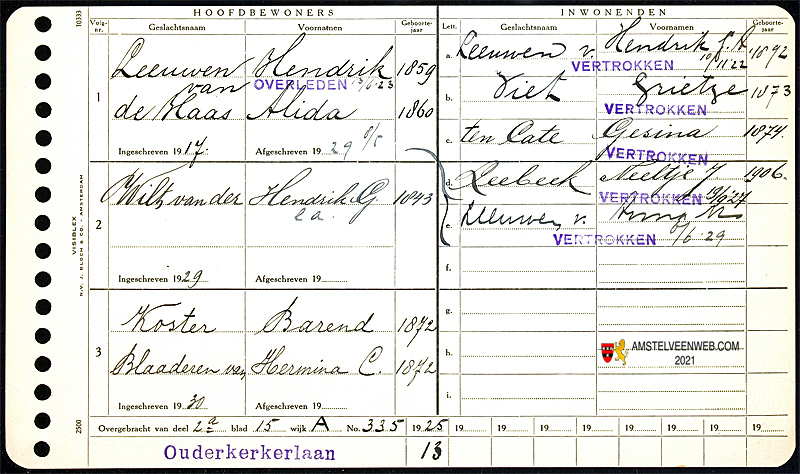 HOOFDBEWONERS
INWONENDEN
Volg-nr. Geslachtsnaam Voornamen Geboorte-jaar
Lett. Geslachtsnaam Voornamen Geboorte-jaar
10333
1 Leeuwen van Hendrik 1859
OVERLEDEN
de Haas Alida 1860
Ingeschreven 1917. Afgeschreven 1929
2 Wilt van der Hendrik G. 1843
e.a.
Ingeschreven 1929 Afgeschreven 19
3 Koster Barend 1872
Blaaderen van Hermina C. 1872
Ingeschreven 1930 Afgeschreven 19
a. Leeuwen v. Hendrik J. A. 1892
VERTROKKEN 10/11 '22
b. Vliet Grietje 1873
VERTROKKEN
c. ten Cate Gesina 1874
VERTROKKEN
d. Leebeek Neeltje J. 1906.
VERTROKKEN
e. Leeuwen v.
VERTROKKEN 29
f.
g.
h.
i.
AMSTELVEENWEB.COM
2021
VISIBLEX
N.V. J. BLOCH & CO. - AMSTERDAM
2500
Overgebracht van deel 2a blad 15 wijk A No. 335 1925 19 19 19 19 19 19 19 19
Ouderkerkerlaan 13